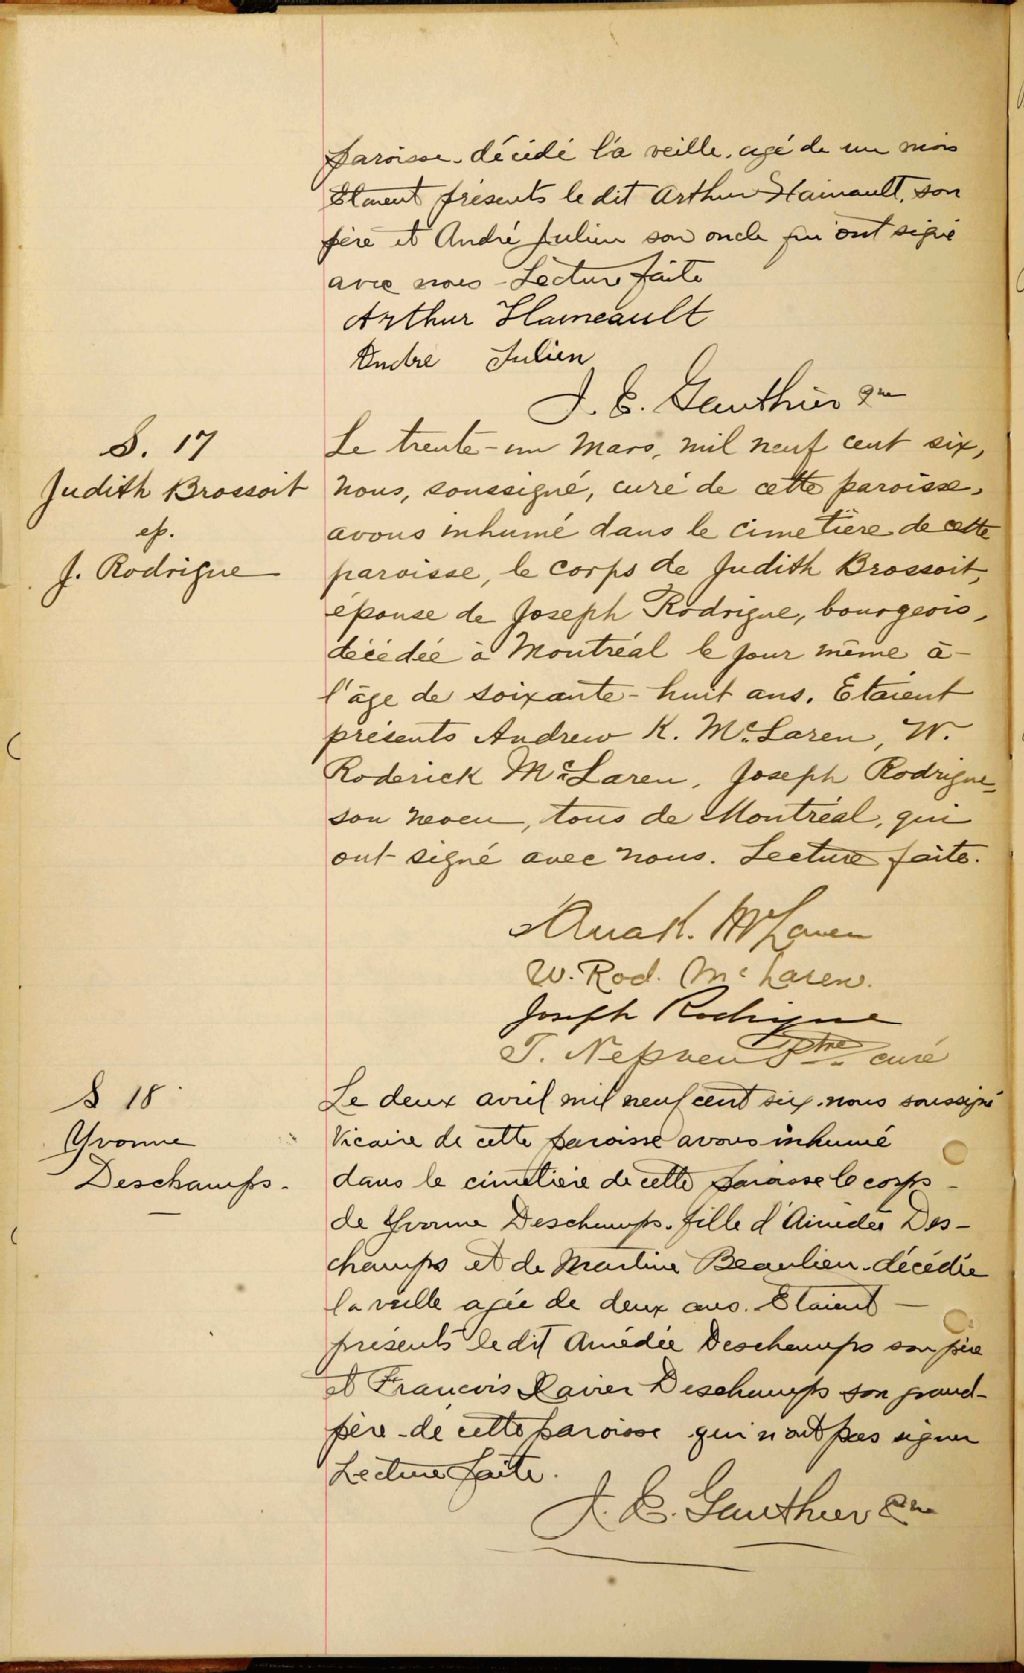 paroisse décédé la veille, agé de un mois
Etaient présents le dit Arthur Hainault, son
père et André Julien son oncle qui ont signé
avec nous - Lecture faite
Arthur Haineault
Andre Julien
J. E. Gauthier Ptre
S. 17
Judith Brossoit
ep.
J. Rodrigue
Le trente-un Mars, mil neuf cent six,
nous, soussigné, curé de cette paroisse,
avons inhumé dans le cimetière de cette
paroisse, le corps de Judith Brossoit,
épouse de Joseph Rodrigue, bourgeois,
décédée à Montréal le jour même à
l'âge de soixante-huit ans. Etaient
présents Andrew K. McLaren, W.
Roderick McLaren, Joseph Rodrigue,
son neveu, tous de Montréal, qui
ont signé avec nous. Lecture faite.
K. McLaren
W. Rod. McLaren.
Joseph Rodrigue
T. Nepveu Ptre curé
S 18
Yvonne
Deschamps.
Le deux avril mil neuf cent six, nous soussigné
Vicaire de cette paroisse avons inhumé
dans le cimetière de cette paroisse le corps
de Yvonne Deschamps, fille d'Amédée Des-
champs et de Martine Beaulieu, décédée
la veille agée de deux ans. Etaient
présents le dit Amédée Deschamps son père
et Francois Xavier Deschamps son grand-
père de cette paroisse qui n'ont pas signer
Lecture faite.
J. E. Gauthier Ptre